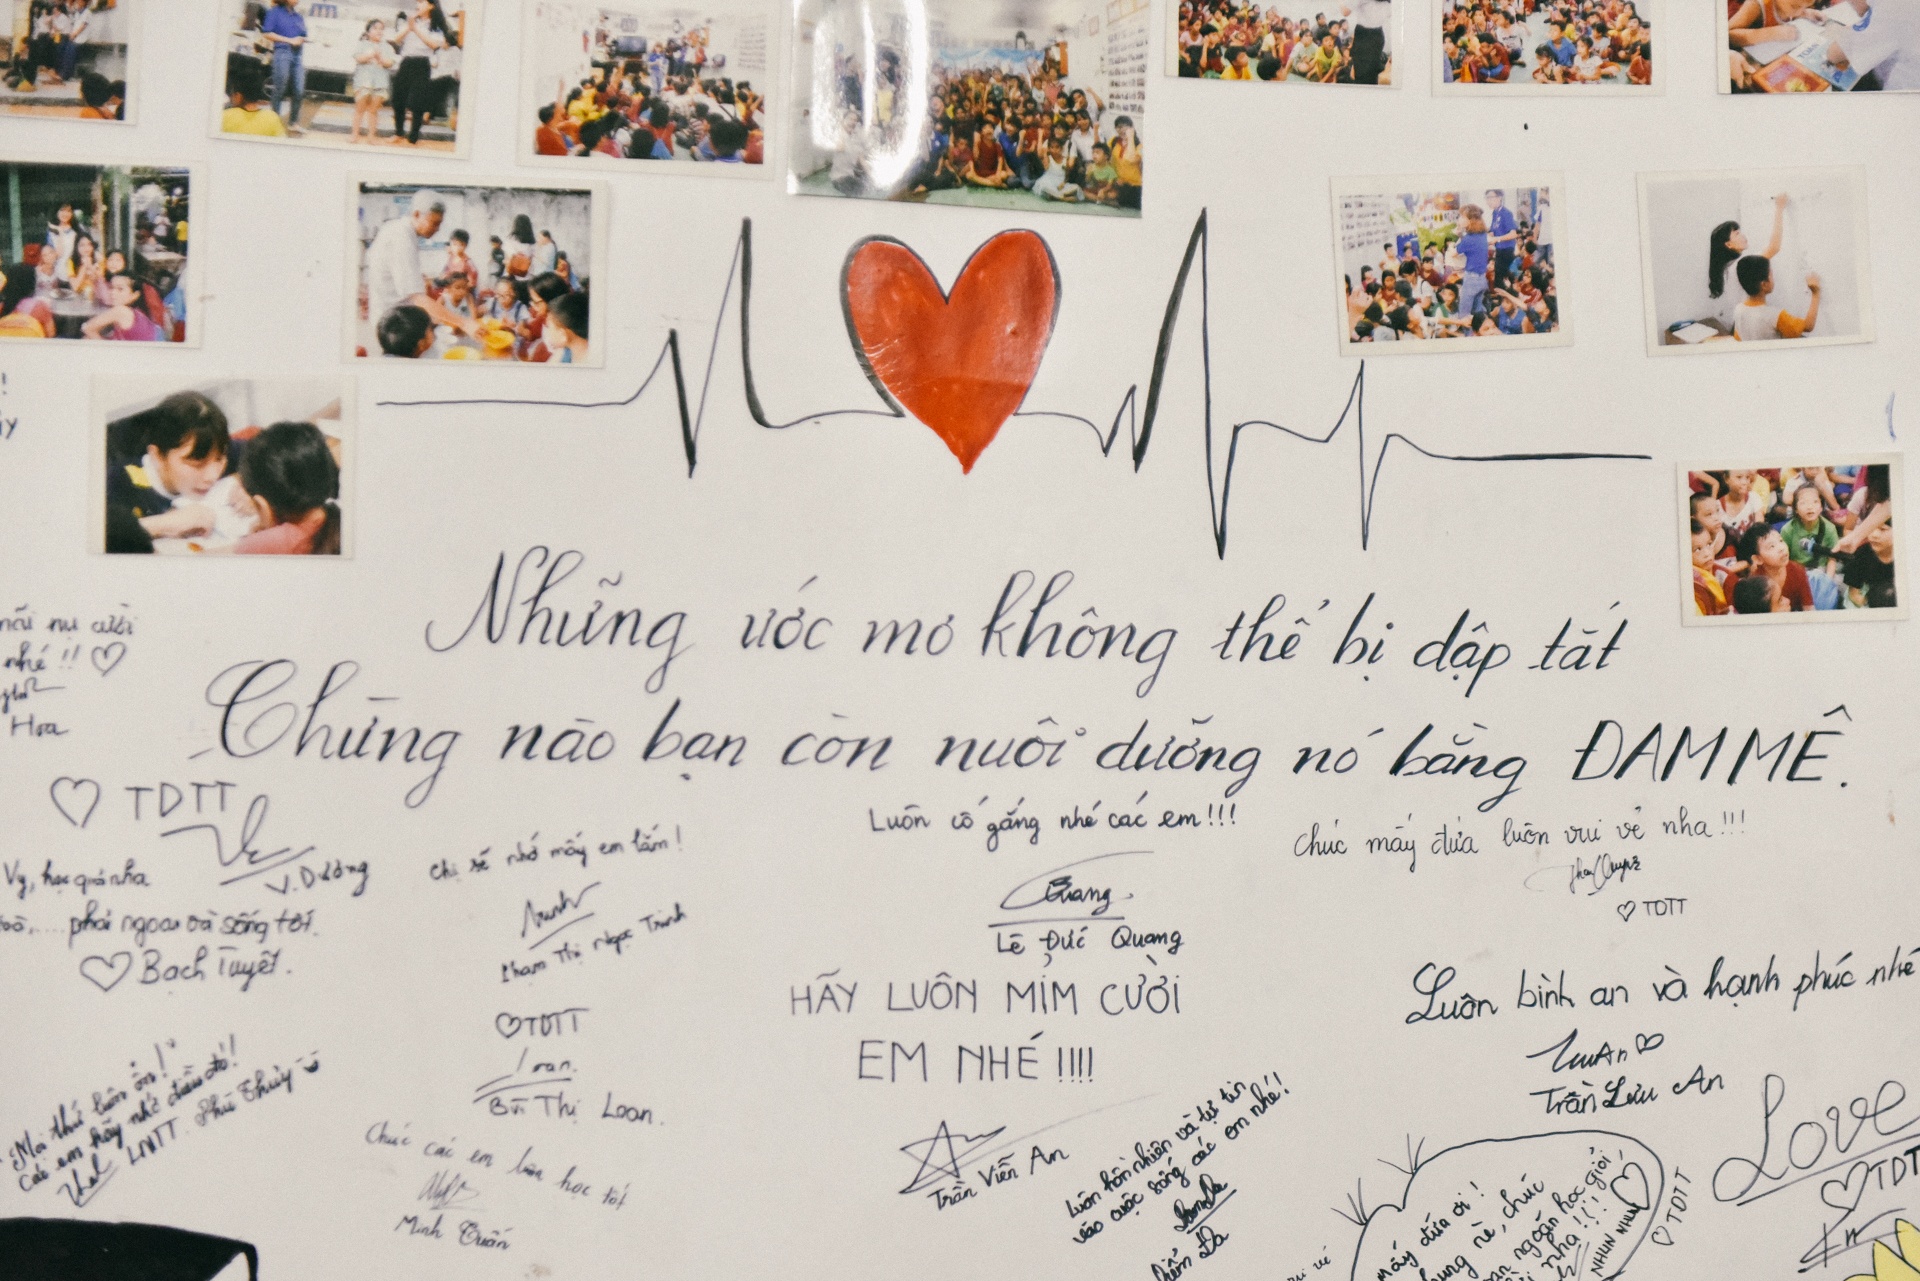 Những ước mơ không thể bị dập tắt
Chừng nào bạn còn nuôi dưỡng nó bằng ĐAM MÊ.
nụ cười
nhé !! ♡
Hoa
♡ TDTT
V.Dương
Vy, học giỏi nha
phải ngoan và sống tốt.
♡ Bạch Tuyết.
Chị sẽ nhớ mấy em lắm!
Phạm Thị Ngọc Trinh
♡TDTT
Loan.
Bùi Thị Loan.
Luôn cố gắng nhé các em!!!
Quang
Lê Đức Quang
Chúc mấy đứa luôn vui vẻ nha!!!
♡ TDTT
HÃY LUÔN MỈM CƯỜI
EM NHÉ !!!!
Trần Viễn An
Luôn bình an và hạnh phúc nhé
LưuAn♡
Trần Lưu An
Mọi thứ luôn ổn!
Các em hãy nhớ điều đó!
LNTT. Phú Thủy
Chúc các em luôn học tốt
Minh Tuấn
Luôn hồn nhiên và tự tin
vào cuộc sống các em nhé!
Diễm Đa
mấy đứa ơi!
nè, chúc
ngoãn học giỏi
nha!!!
NHUN NHUN
♡ TDTT
Love
♡TDT